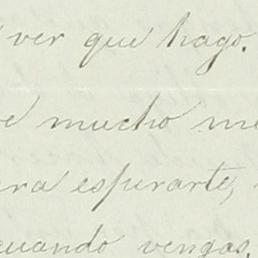 ver que hago.
mucho
esperarte,
cuando vengas.